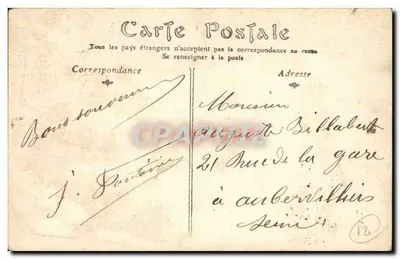 Carte Postale
Tous les pays étrangers n'acceptent pas la correspondance au recto
Se renseigner à la poste
Correspondance
Adresse
Bons souvenirs
J.
Monsieur
auguste Billabert
21 Rue de la gare
à aubervilliers
Seine